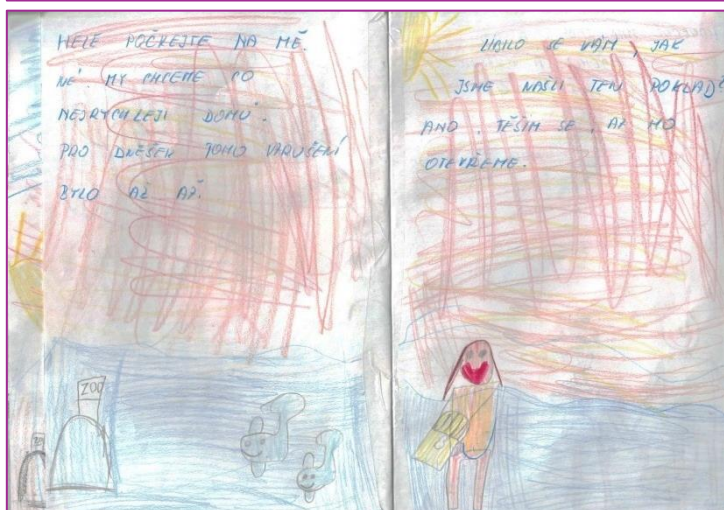 HELE POČKEJTE NA MĚ.
NÉ. MY CHCEME CO
NEJRYCHLEJI DOMŮ.
PRO DNEŠEK TOHO VZRUŠENÍ
BYLO AŽ AŽ.
ZOO
LÍBILO SE VÁM, JAK
JSME NAŠLI TEN POKLAD?
ANO, TĚŠÍM SE, AŽ HO
OTEVŘEME.